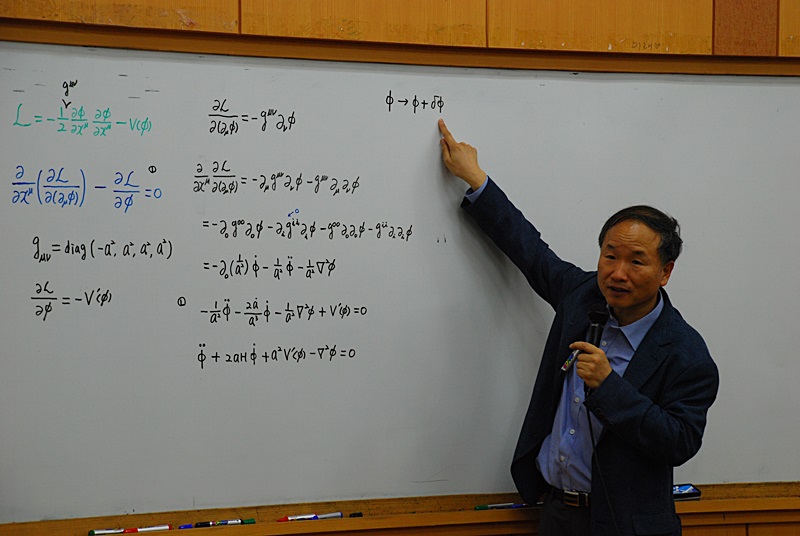 g^{μν}
ℒ = -1/2 ∂ϕ/∂x^μ ∂ϕ/∂x^μ - V(ϕ)
∂/∂x^μ (∂ℒ/∂(∂_μϕ)) - ∂ℒ/∂ϕ = 0 ①
g_{μν} = diag(-a², a², a², a²)
∂ℒ/∂ϕ = -V'(ϕ)
∂ℒ/∂(∂_μϕ) = -g^{μν} ∂_νϕ
∂/∂x^μ ∂ℒ/∂(∂_μϕ) = -∂_μ g^{μν} ∂_νϕ - g^{μν} ∂_μ ∂_νϕ
0
= -∂_0 g^{00} ∂_0ϕ - ∂_i g^{ii} ∂_iϕ - g^{00} ∂_0∂_0ϕ - g^{ii} ∂_i∂_iϕ
= -∂_0(1/a²) ϕ̇ - 1/a² ϕ̈ - 1/a² ∇²ϕ
① -1/a² ϕ̈ - 2ȧ/a³ ϕ̇ - 1/a² ∇²ϕ + V'(ϕ) = 0
ϕ̈ + 2aH ϕ̇ + a² V'(ϕ) - ∇²ϕ = 0
ϕ → ϕ + δϕ